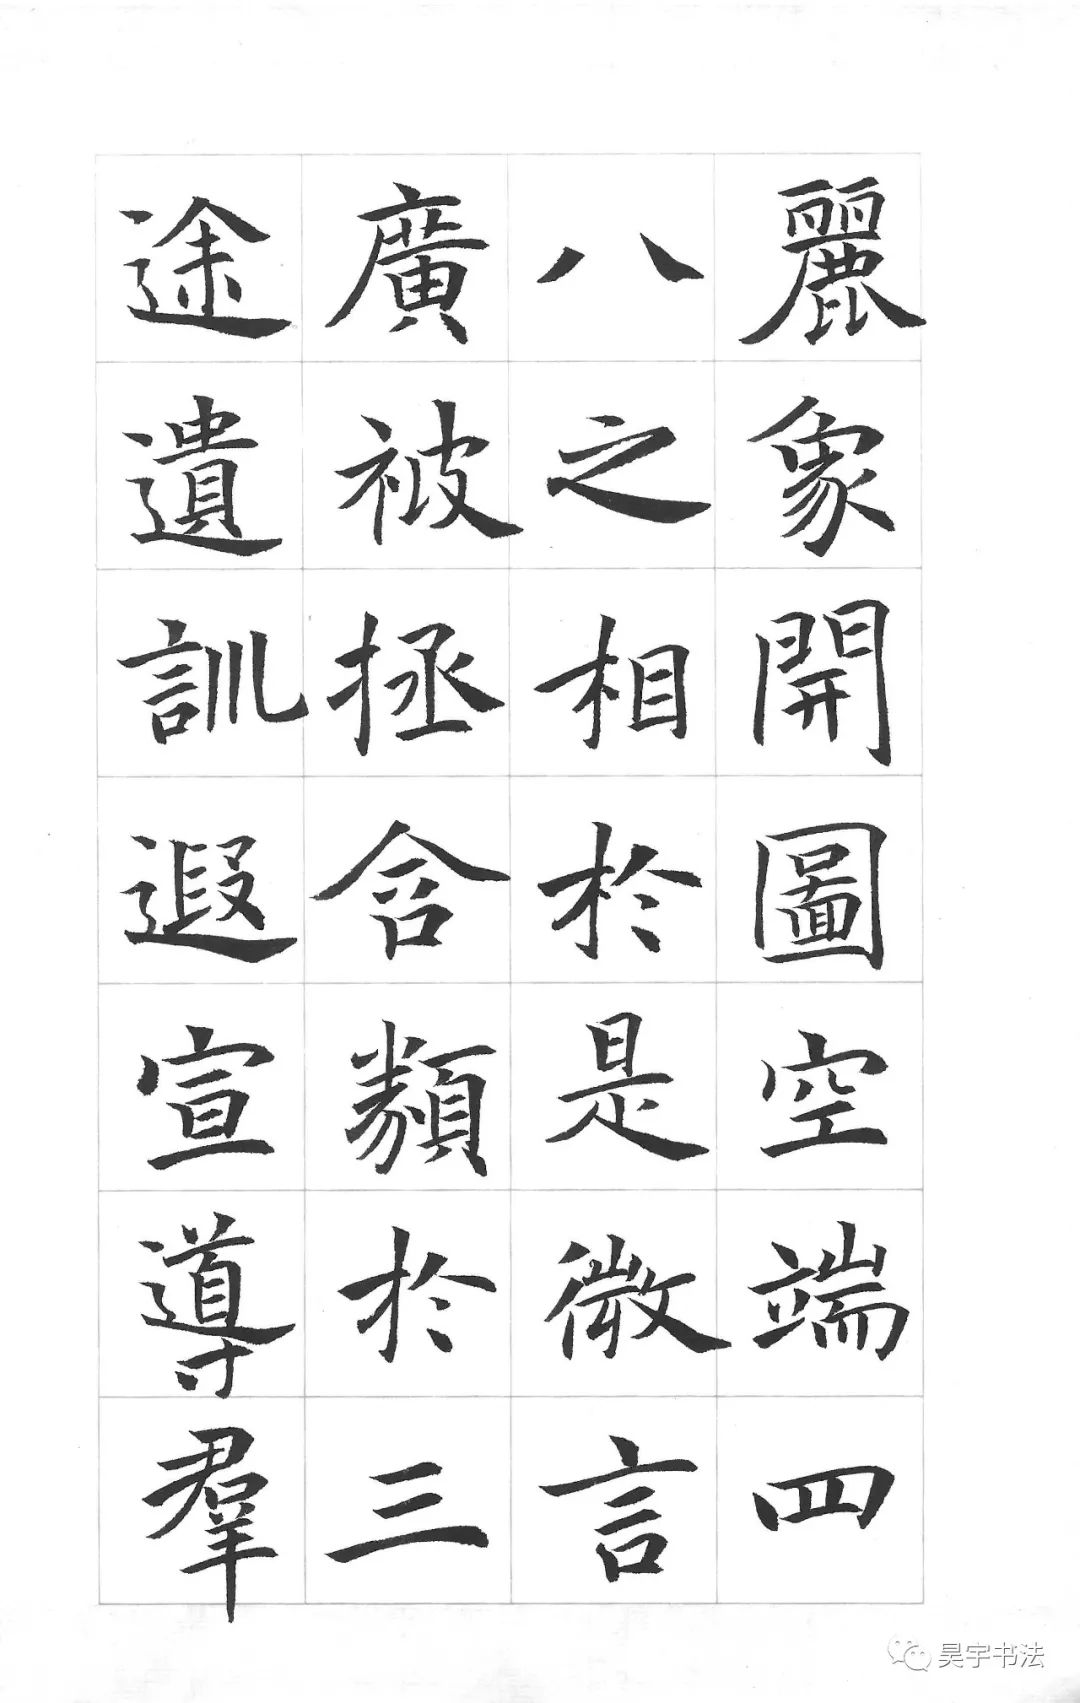 麗象開圖空端四
八之相於是微言
廣被拯含類於三
途遺訓遐宣導羣
昊宇书法